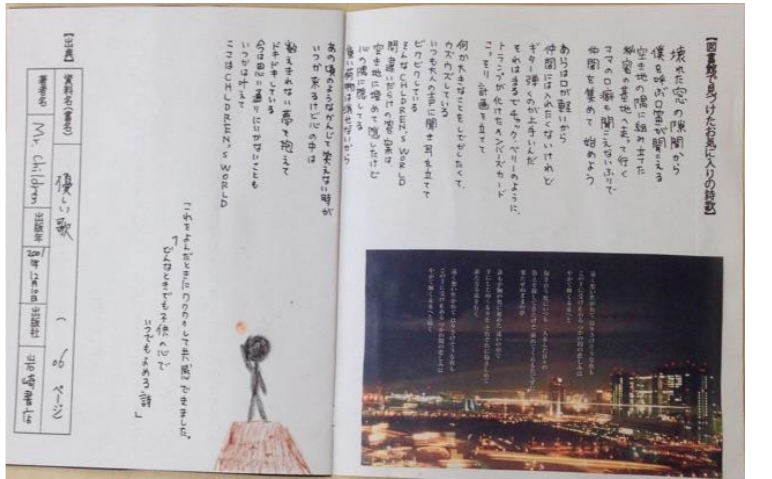 【図書館で見つけたお気に入りの詩歌】
壊れた窓の隙間から
僕を呼ぶ口笛が聞こえる
空き地の隅に組み立てた
秘密の基地へ走って行く
ママの口癖も聞こえないふりで
仲間を集めて 始めよう
あいつは口が軽いから
仲間には入れたくないけれど
ギター弾くのが上手いんだ
それはまるでチャック・ベリーのように、
トランプが化けたメンバーズカード
こっそり計画を立てて
何か大きなことをしでかしたくて、
ウズウズしている
いつも大人の声に聞き耳を立てて
ビクビクしている
そんなCHILDREN'S WORLD
間違いだらけの答案は
空き地に埋めて隠したけど
心の隅に隠してる
重い荷物は消せないから
あの頃のようなかんじで笑えない時が
いつか来るけど心の中は
数えきれない夢を抱えて
ドキドキしている
今は思い通りにいかないことも
いつかは叶えて
ここはCHILDREN'S WORLD
これをよんだときにワクワクして共感できました。
「どんなときでも子供の心で
いつでもよめる詩」
【出典】
資料名(書名) 優しい歌 ページ
著者名 Mr. Children 出版年 2001年12月10日 出版社 岩崎書店